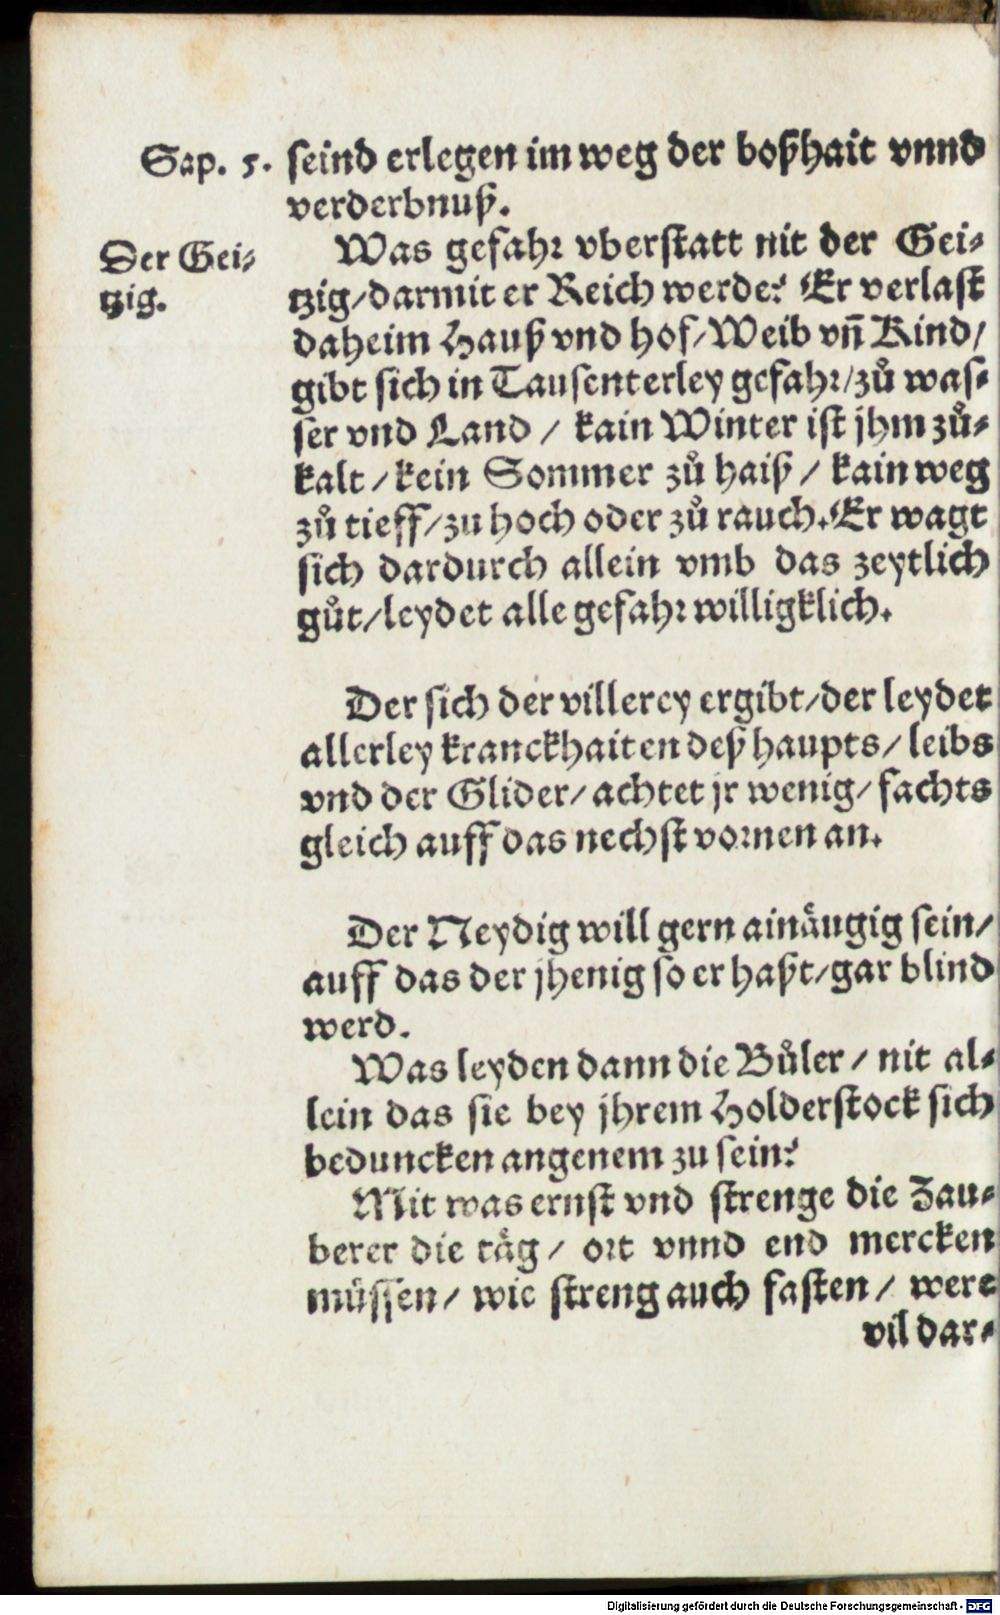 Sap. 5. seind erlegen im weg der boßhait vnnd
verderbnuß.
Der Gei-
tzig.
Was gefahr vberstatt nit der Gei-
tzig/darmit er Reich werde? Er verlast
daheim Hauß vnd hof/Weib vn̄ Kind/
gibt sich in Tausenterley gefahr/zů was-
ser vnd Land / kain Winter ist jhm zů-
kalt / kein Sommer zů haiß / kain weg
zů tieff/zu hoch oder zů rauch. Er wagt
sich dardurch allein vmb das zeytlich
gůt/leydet alle gefahr willigklich.
Der sich der villerey ergibt/der leydet
allerley kranckhaiten deß haupts/ leibs
vnd der Glider/ achtet jr wenig/ fachts
gleich auff das nechst vornen an.
Der Neydig will gern ainäugig sein/
auff das der jhenig so er haßt/gar blind
werd.
Was leyden dann die Bůler / nit al-
lein das sie bey jhrem Holderstock sich
beduncken angenem zu sein?
Mit was ernst vnd strenge die Zau-
berer die täg / ort vnnd end mercken
müssen/ wie streng auch fasten / were
vil dar-
Digitalisierung gefördert durch die Deutsche Forschungsgemeinschaft - DFG